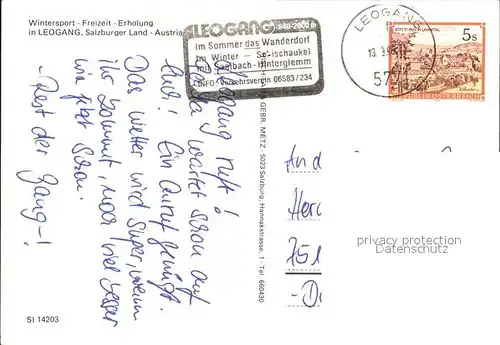 Wintersport - Freizeit - Erholung
in LEOGANG, Salzburger Land - Austria
LEOGANG 840-2000 m
im Sommer das Wanderdorf
im Winter - Schischaukel
mit Saalbach-Hinterglemm
INFO: Verkehrsverein 06583/234
LEOGANG
5 S
REPUBLIK ÖSTERREICH
Leogang ruft!
wartet schon auf
Euch! Ein Anruf genügt.
Das Wetter wird super, wenn
ihr kommt, noch viel besser
wie jetzt schon.
-Rest der Gang-!
GEBR. METZ · 5023 Salzburg, Hannakstrasse 1 · Tel. 660430
An d
Her
751
-D
privacy protection
Datenschutz
SI 14203